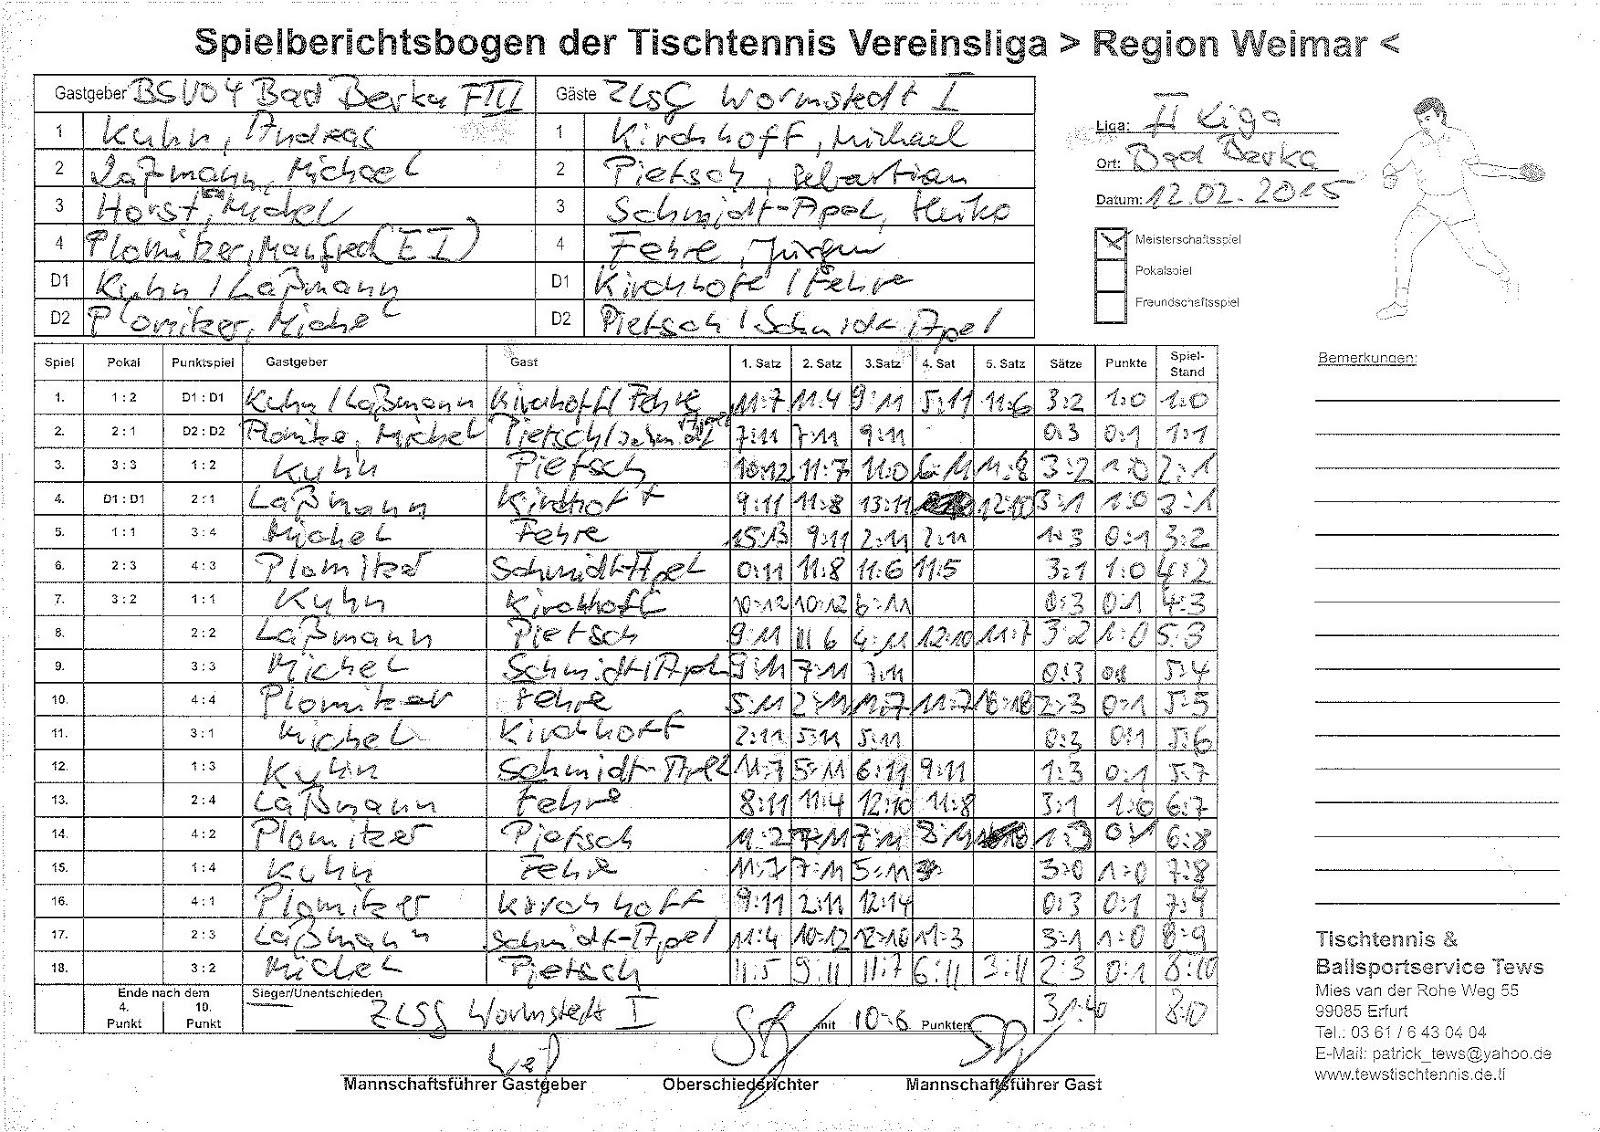 Spielberichtsbogen der Tischtennis Vereinsliga > Region Weimar <
Gastgeber BSV04 Bad Berka III Gäste ZLSG Wormstedt I
1 Kuhn, Andreas 1 Kirchhoff, Michael
2 Laßmann, Michael 2 Pietsch, Sebastian
3 Horst, Michel 3 Schmidt-Apel, Heiko
4 Plomitzer, Manfred (E I) 4 Fehre, Jürgen
D1 Kuhn / Laßmann D1 Kirchhoff / Fehre
D2 Plomitzer, Michel D2 Pietsch / Schmidt-Apel
Liga: II Liga
Ort: Bad Berka
Datum: 12.02.2015
Meisterschaftsspiel
Pokalspiel
Freundschaftsspiel
Spiel Pokal Punktspiel Gastgeber Gast 1. Satz 2. Satz 3.Satz 4. Sat 5. Satz Sätze Punkte Spiel-Stand
1. 1 : 2 D1 : D1 Kuhn / Laßmann Kirchhoff / Fehre 11:7 11:4 9:11 5:11 11:6 3:2 1:0 1:0
2. 2 : 1 D2 : D2 Michel Pietsch / Schmidt Apel 7:11 7:11 9:11 0:3 0:1 1:1
3. 3 : 3 1 : 2 Kuhn Pietsch 10:12 11:7 11:0 6:11 11:8 3:2 1:0 2:1
4. D1 : D1 2 : 1 Laßmann Kirchhoff 9:11 11:8 13:11 12:10 3:1 1:0 3:1
5. 1 : 1 3 : 4 Michel Fehre 15:13 9:11 2:11 2:11 1:3 0:1 3:2
6. 2 : 3 4 : 3 Plomitzer Schmidt-Apel 0:11 11:8 11:6 11:5 3:1 1:0 4:2
7. 3 : 2 1 : 1 Kuhn Kirchhoff 10:12 10:12 6:11 0:3 0:1 4:3
8. 2 : 2 Laßmann Pietsch 9:11 11:6 4:11 12:10 11:7 3:2 1:0 5:3
9. 3 : 3 Michel Schmidt-Apel 9:11 7:11 7:11 0:3 0:1 5:4
10. 4 : 4 Plomitzer Fehre 5:11 2:11 11:7 11:7 16:18 2:3 0:1 5:5
11. 3 : 1 Michel Kirchhoff 2:11 5:11 5:11 0:3 0:1 5:6
12. 1 : 3 Kuhn Schmidt-Apel 11:7 5:11 6:11 9:11 1:3 0:1 5:7
13. 2 : 4 Laßmann Fehre 8:11 11:4 12:10 11:8 3:1 1:0 6:7
14. 4 : 2 Plomitzer Pietsch 11:2 7:11 7:11 8:11 1:3 0:1 6:8
15. 1 : 4 Kuhn Fehre 11:7 7:11 5:11 3:0 1:0 7:8
16. 4 : 1 Plomitzer Kirchhoff 9:11 2:11 12:14 0:3 0:1 7:9
17. 2 : 3 Laßmann Schmidt-Apel 11:4 10:12 12:10 11:3 3:1 1:0 8:9
18. 3 : 2 Michel Pietsch 11:5 9:11 11:7 6:11 3:11 2:3 0:1 8:10
Ende nach dem
4. Punkt 10. Punkt
Sieger/Unentschieden
ZLSG Wormstedt I mit 10:8 Punkten 31:40 8:10
Mannschaftsführer Gastgeber Oberschiedsrichter Mannschaftsführer Gast
Bemerkungen:
Tischtennis &
Ballsportservice Tews
Mies van der Rohe Weg 55
99085 Erfurt
Tel.: 03 61 / 6 43 04 04
E-Mail: patrick_tews@yahoo.de
www.tewstischtennis.de.tl